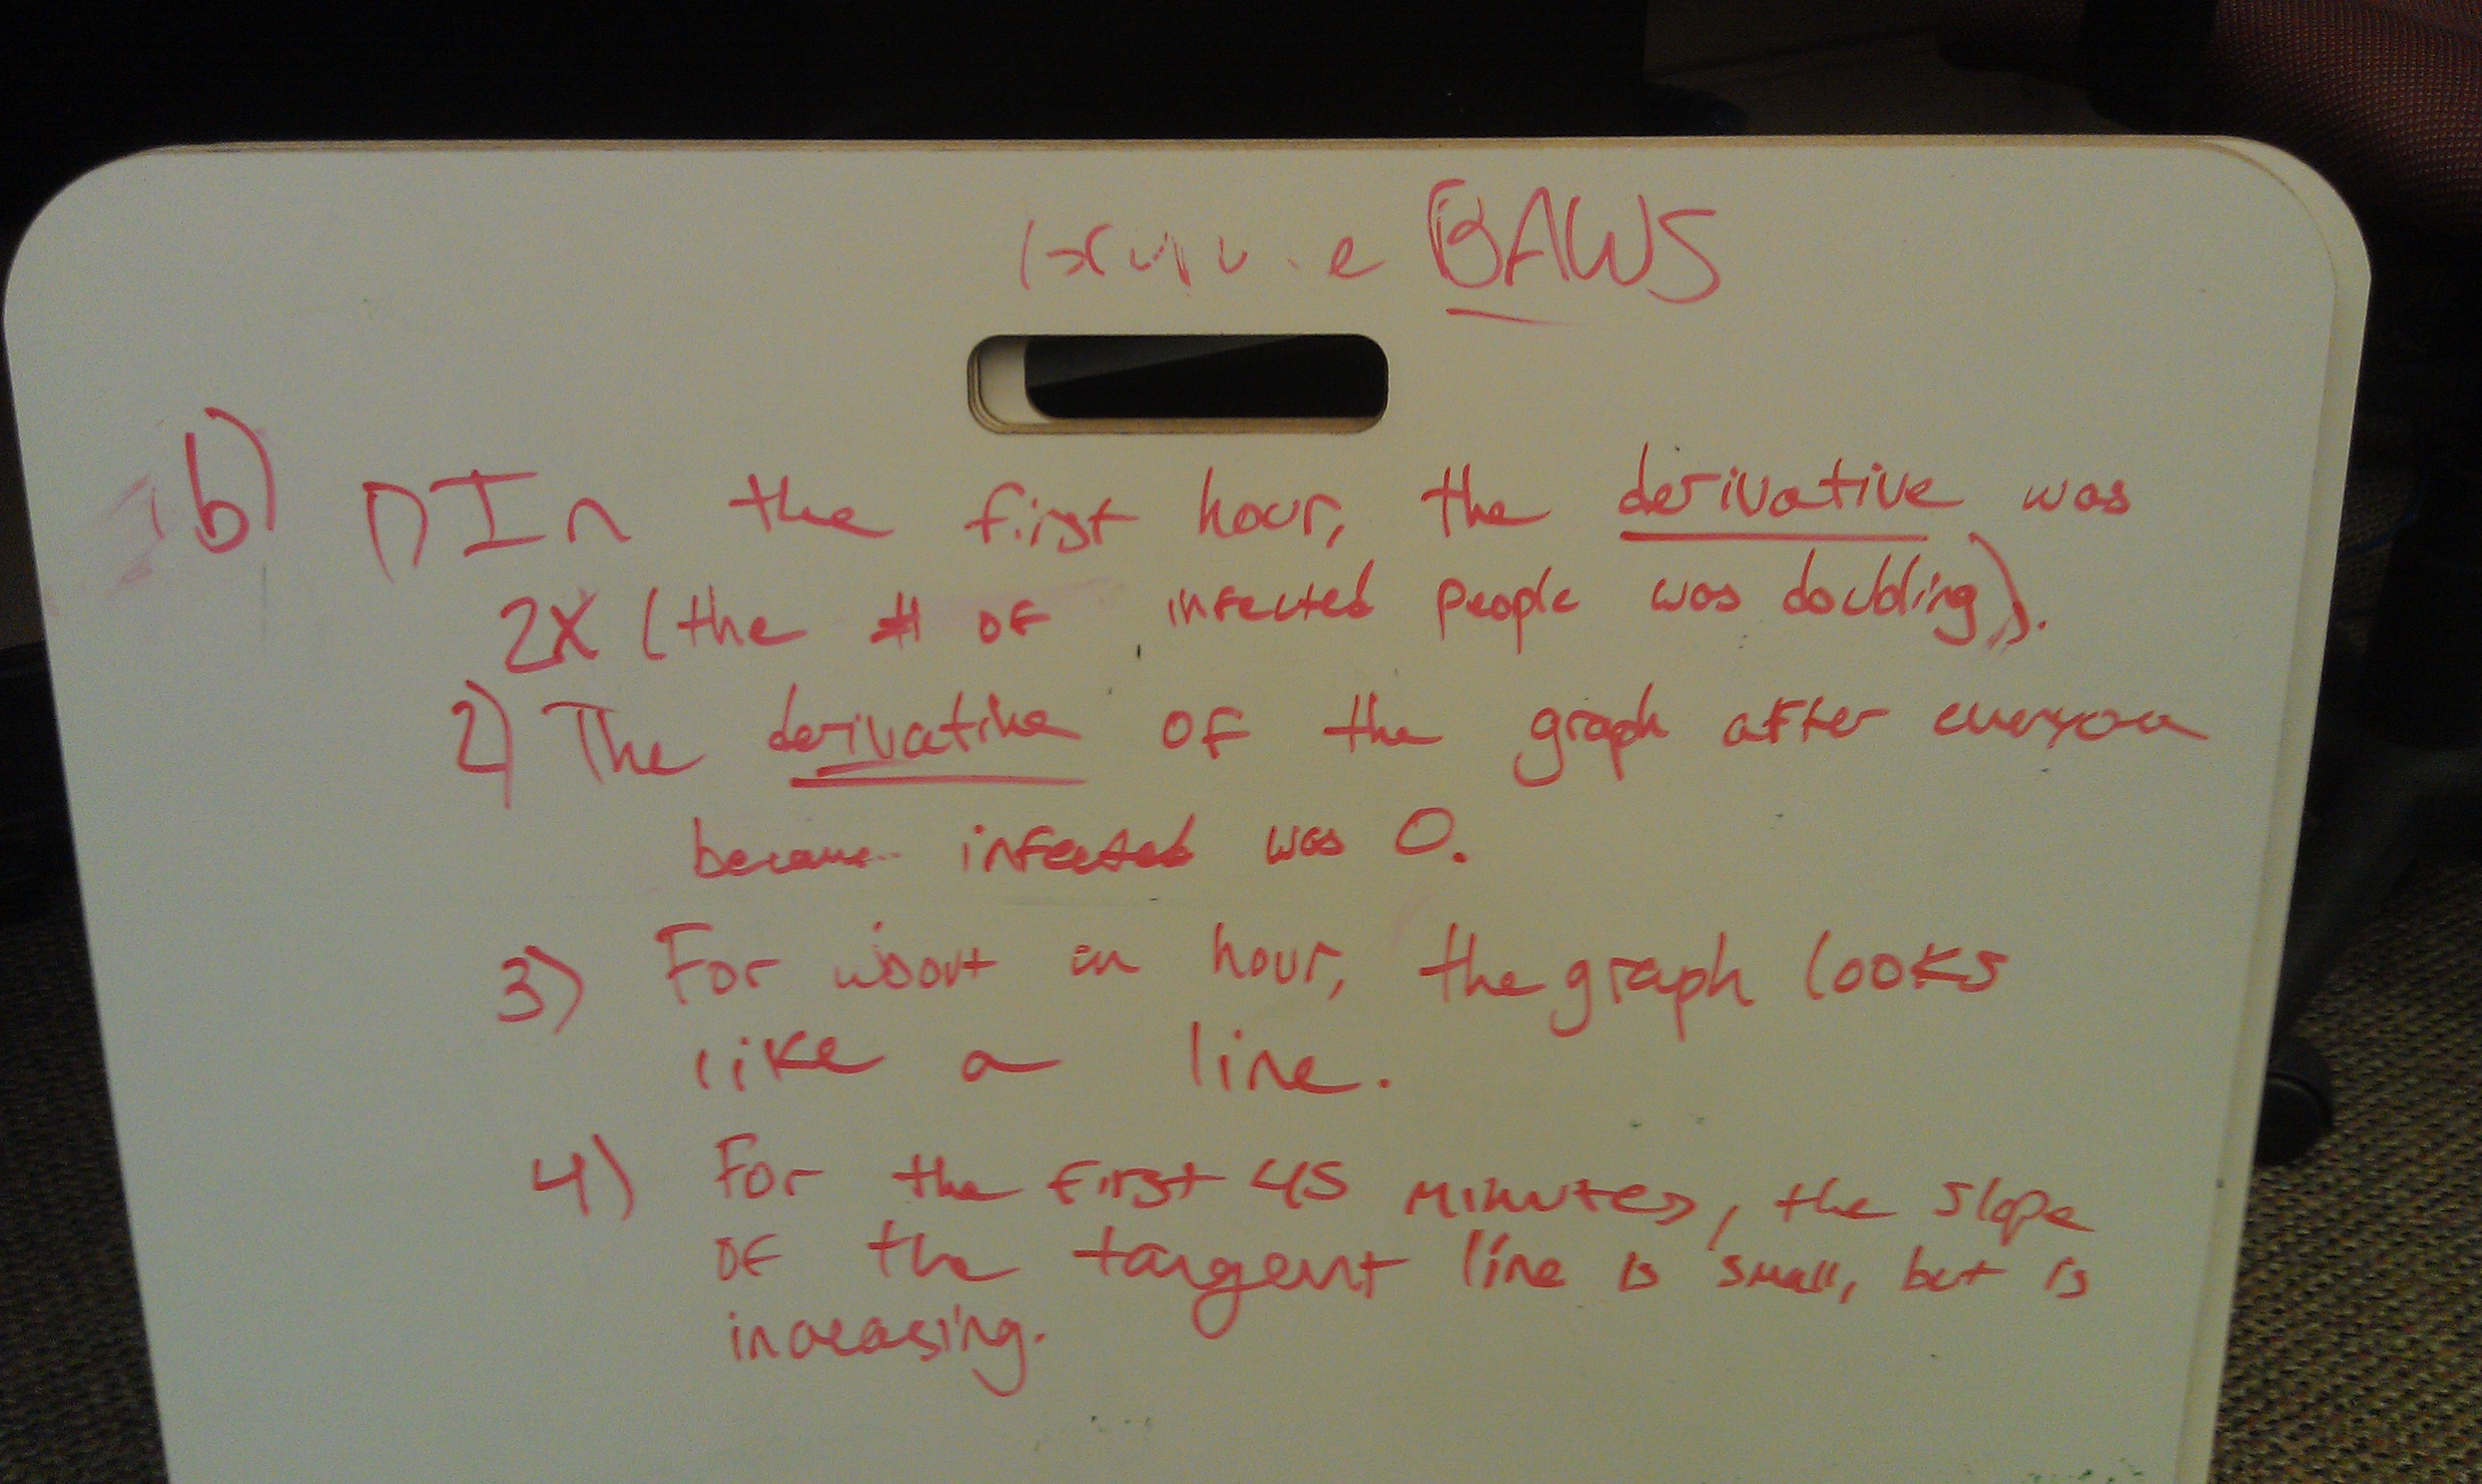 BAWS
b) 1) In the first hour, the derivative was
2X (the # of infected people was doubling).
2) The derivative of the graph after everyone
became infected was 0.
3) For about an hour, the graph looks
like a line.
4) For the first 45 minutes, the slope
of the tangent line is small, but is
increasing.